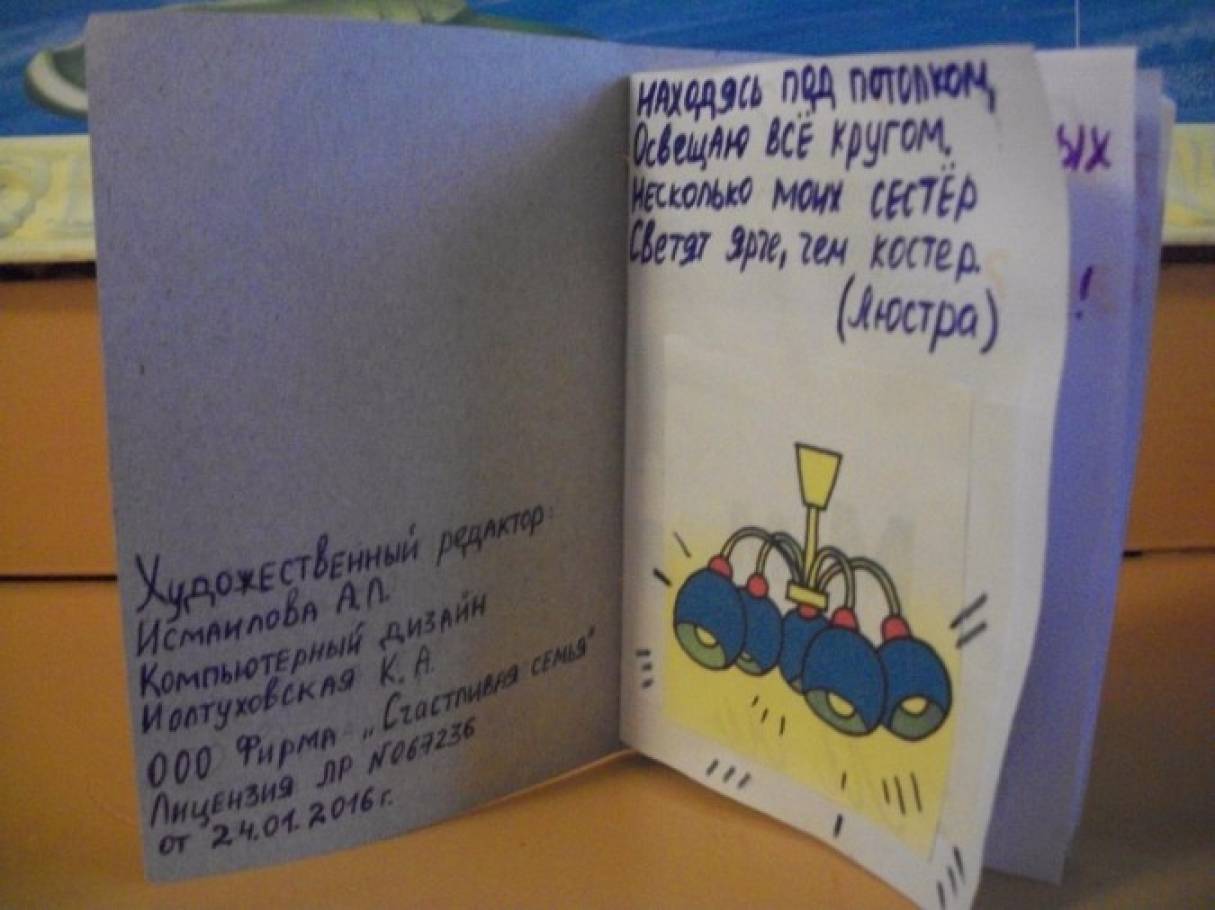 Художественный редактор:
Исмаилова А.П.
Компьютерный дизайн
Иолтуховская К. А.
ООО Фирма „Счастливая семья"
Лицензия ЛР №067236
от 24.01.2016 г.
Находясь под потолком,
Освещаю всё кругом.
Несколько моих сестёр
Светят ярче, чем костер.
(Люстра)
ых
!